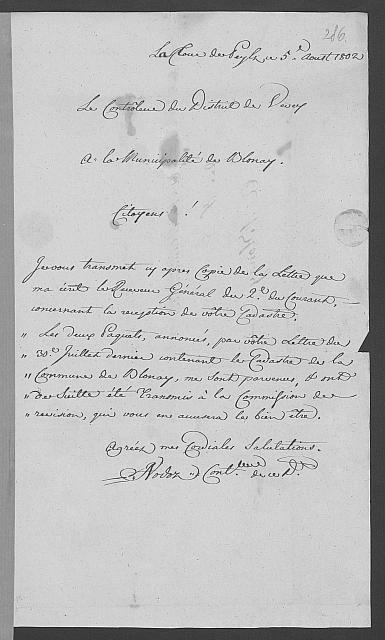 286.
La Tour de Peylz, ce 5.e Aoust 1802
Le Contrôleur du District de Vevey
A la Municipalité de Blonay.
Citoyens !
Je vous transmet cy apres Copie de la Lettre que
ma écrit le Receveur Général du 2.e du Courant,
concernant la reception de vôtre Cadastre.
" Les deux Paquets, annoncés, par vôtre Lettre du
" 30.e Juillet dernier contenant le Cadastre de la
" Commune de Blonay, me sont parvenus, & ont
" de suitte été transmis à la Commission de
" revision, qui vous en accusera les bien être.
Agréez mes Cordiales Salutations.
Nodoz Cont.leur de ce D.t